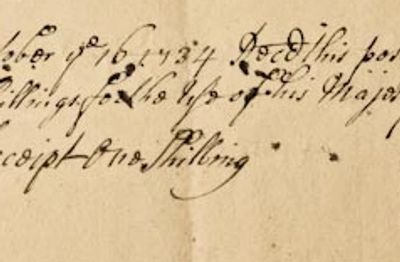 tober yᵉ 16 1734 Reced this por
hillings for the Use of his Majes
eceipt One Shilling